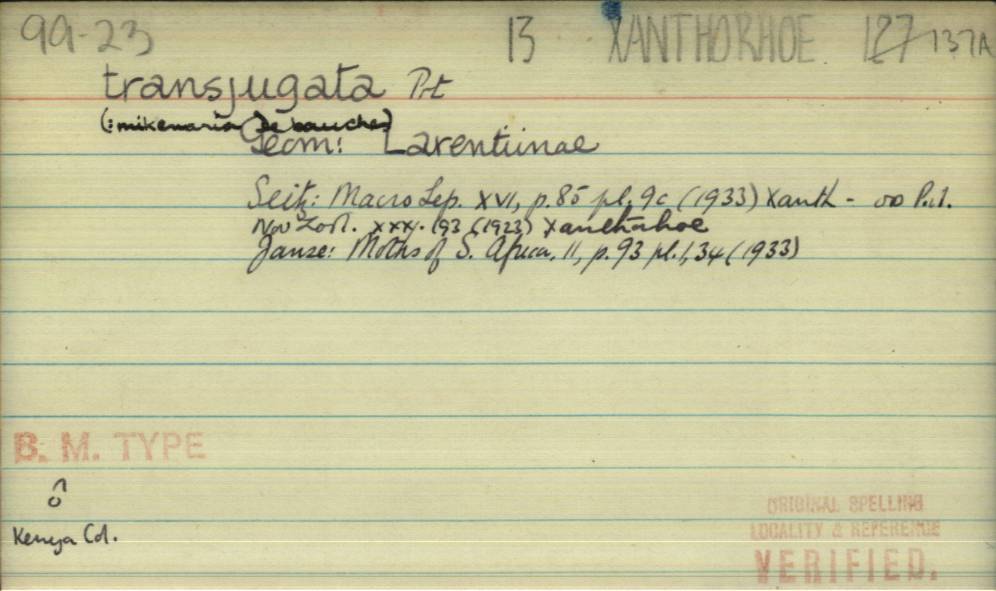 99-23 13 XANTHORHOE 127 137A
transjugata Prt
(:mikenaria Debauche)
Geom: Larentiinae
Seitz: Macro Lep. XVI, p. 85 pl. 9c (1933) Xanth -
Nov Zool. xxx. 193 (1923) Xanthorhoe
Janse: Moths of S. Africa, II, p. 93 pl. 1, 34 (1933)
B. M. TYPE
♂
Kenya Col.
ORIGINAL SPELLING
LOCALITY & REFERENCE
VERIFIED.